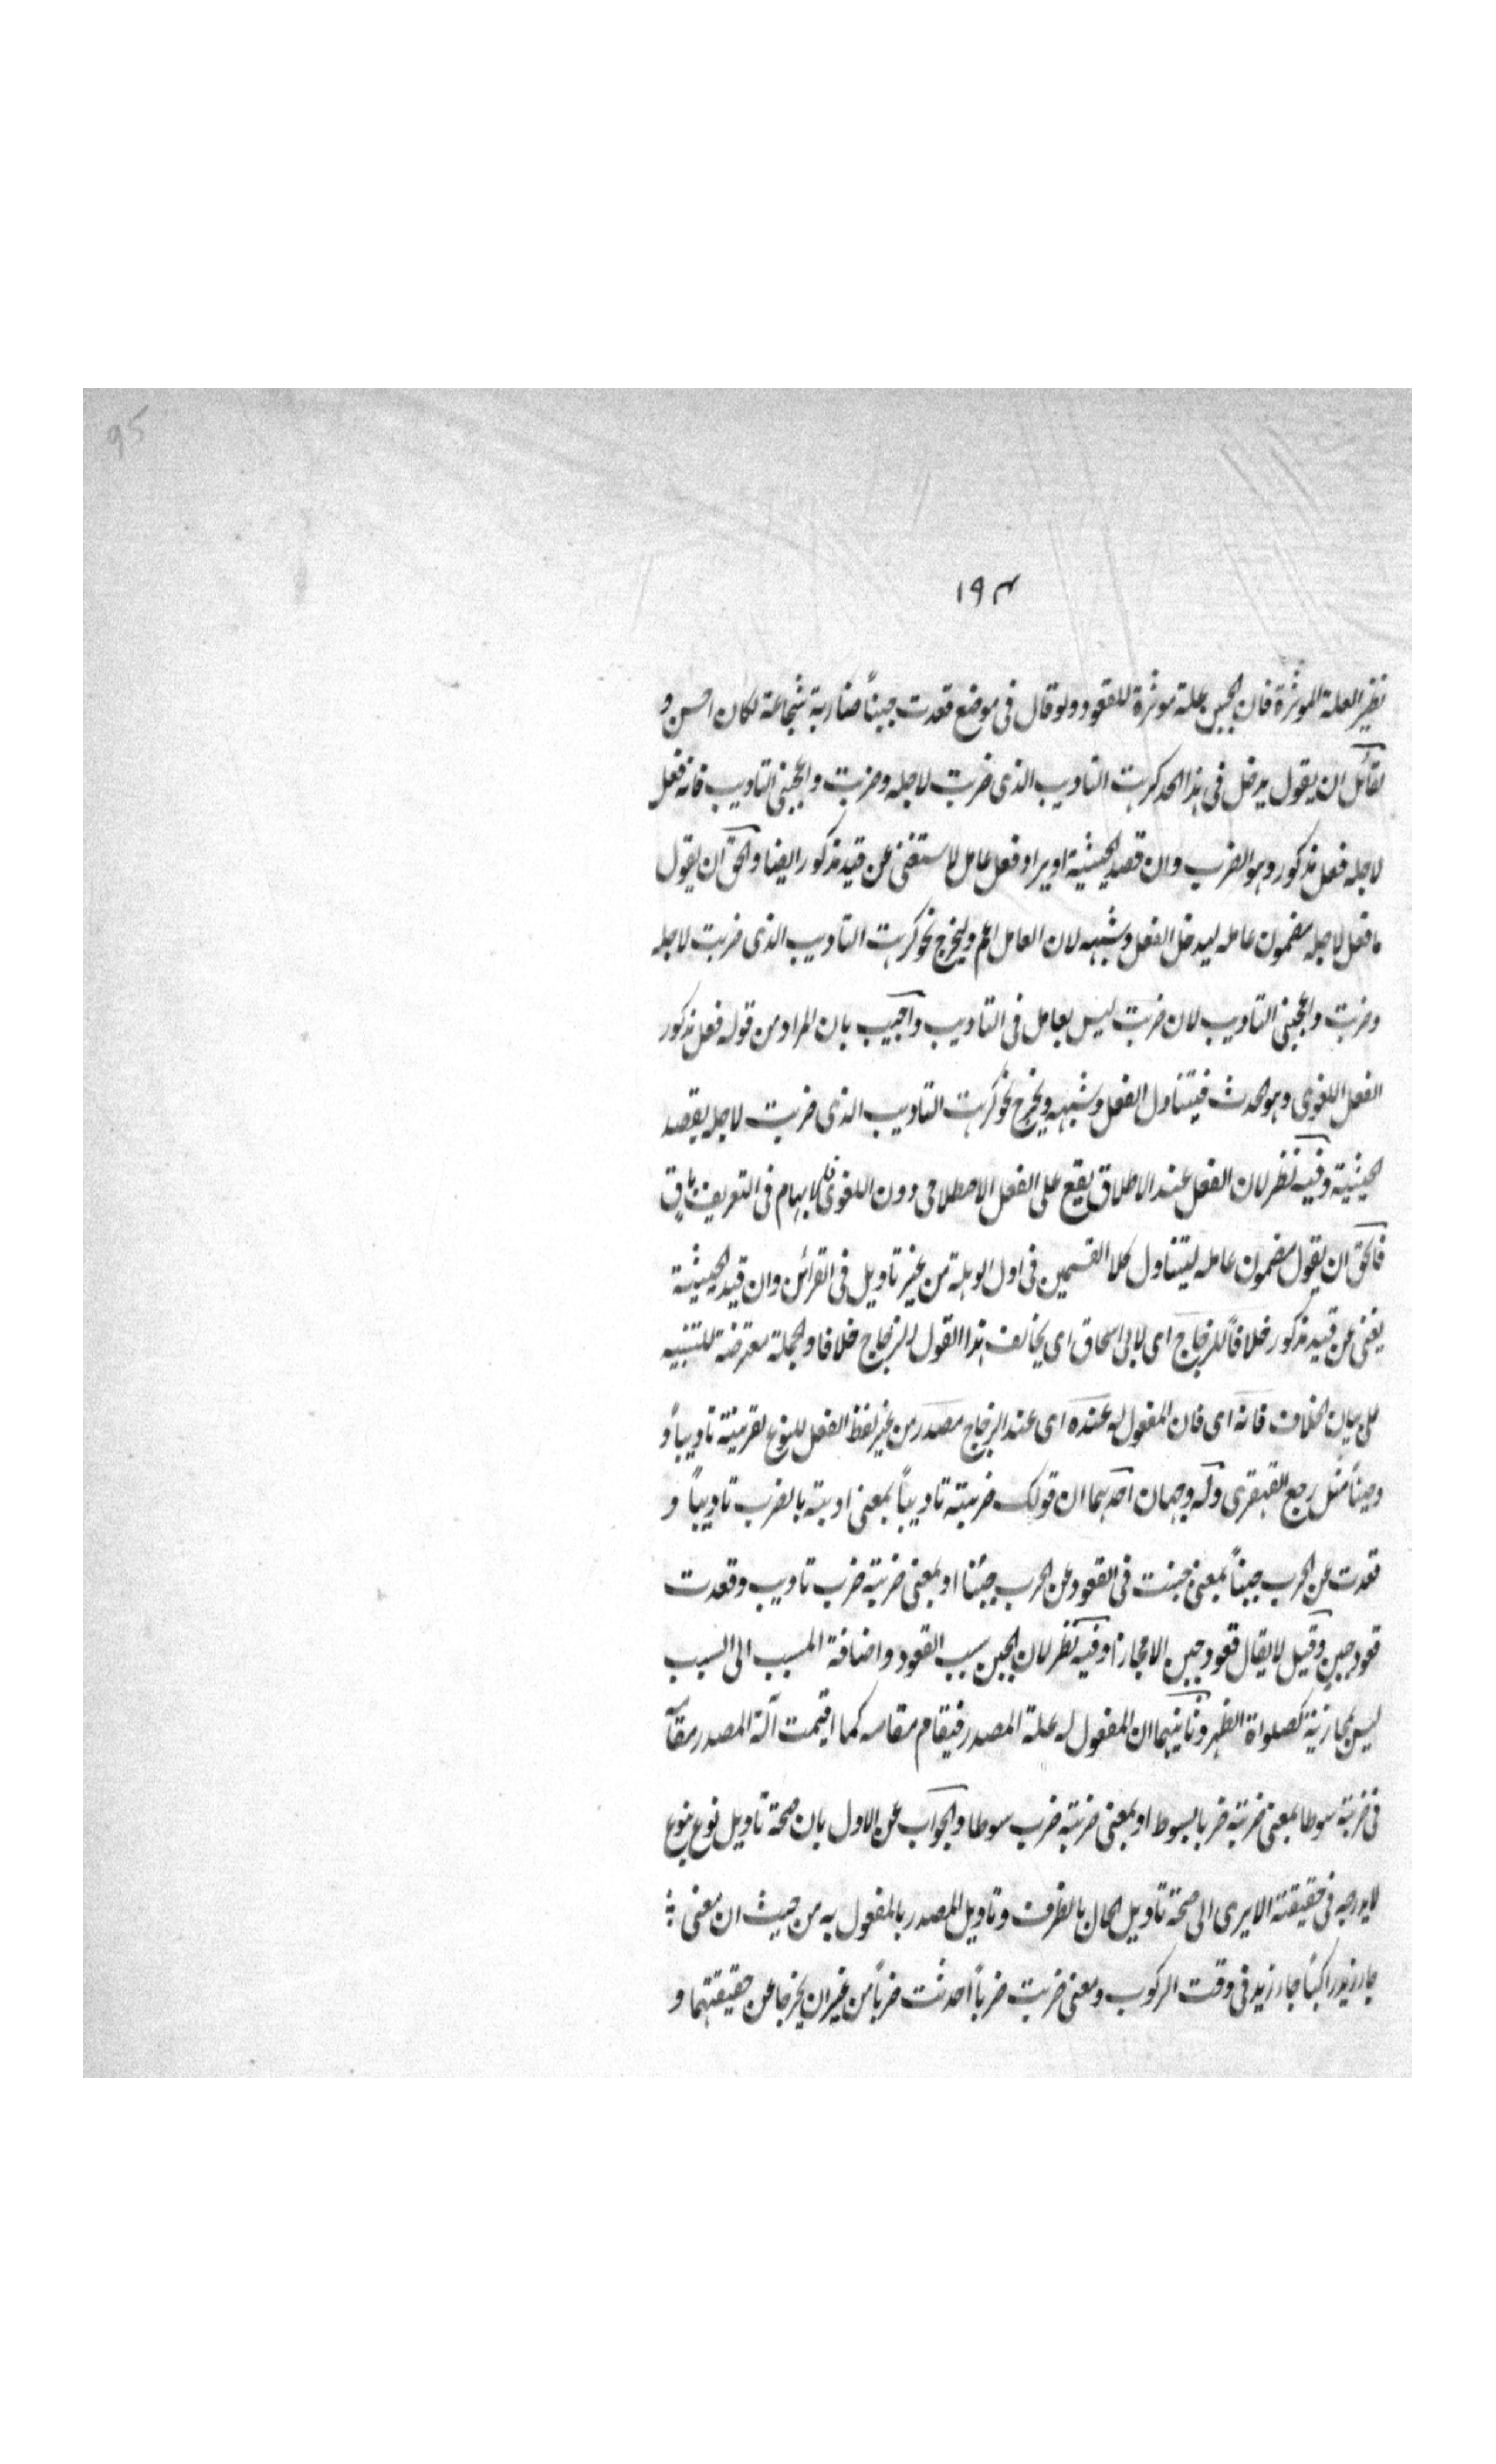 95
١٩٤
نظير العلة المؤثرة فان الجبن علة موثرة للقعود ولو قال فى موضع قعدت جبناً ضاربته شجاعة لكان احسن و
لقائل ان يقول يدخل فى هذا الحد كرهت التاديب الذى ضربت لاجله وضربت واعجبنى التاديب فانه فعل
لاجله فعل مذكور وهو الضرب وان قصد الحيثية او يراد فعل عامل لاستغنى عن قيد مذكور ايضا والحق ان يقول
ما فعل لاجله مضمون عامله ليدخل الفعل وشبهه لان العامل اعم وليخرج نحو كرهت التاديب الذى ضربت لاجله
وضربت واعجبنى التاديب لان ضربت ليس بعامل فى التاديب واجيب بان المراد من قوله فعل مذكور
الفعل اللغوى وهو الحدث فيتناول الفعل وشبهه ويخرج نحو كرهت التاديب الذى ضربت لاجله بقصد
الحيثية وفيه نظر لان الفعل عند الاطلاق يقع على الفعل الاصطلاحى دون اللغوى فالابهام فى التعريف باق
فالحق ان يقول مضمون عامله ليتناول كلا القسمين فى اول الوهلة من غير تاويل فى القرائن وان قيد الحيثية
يغنى عن قيد مذكور خلافاً للزجاج اى لابى اسحاق اى يخالف هذا القول للزجاج خلافا والجملة معترضة للتنبيه
على بيان الخلاف فانه اى فان المفعول له عنده اى عند الزجاج مصدر من غير لفظ الفعل للنوع لقرينة تاديباً و
وجبناً مثل رجع القهقرى وله وجهان احدهما ان قولك ضربته تاديباً بمعنى ادبته بالضرب تاديباً و
قعدت عن الحرب جبناً بمعنى جبنت فى القعود عن الحرب جبنا او بمعنى ضربته ضرب تاديب وقعدت
قعود جبن وقيل لا يقال قعود جبن الا مجازا وفيه نظر لان الجبن سبب القعود واضافة المسبب الى السبب
ليس بمجازية كصلواة الظهر وثانيهما ان المفعول له علة المصدر فيقام مقامه كما اقيمت آلة المصدر مقامه
فى ضربته سوطا بمعنى ضربته ضربا بسوط او بمعنى ضربته ضرب سوطا والجواب عن الاول بان صحة تاويل نوع بنوع
لا يدرجه فى حقيقته الا يرى الى صحة تاويل الحال بالظرف وتاويل المصدر بالمفعول به من حيث ان معنى
جاء زيد راكباً جاء زيد فى وقت الركوب ومعنى ضربت ضرباً احدثت ضرباً من غير ان يخرجا عن حقيقتهما و